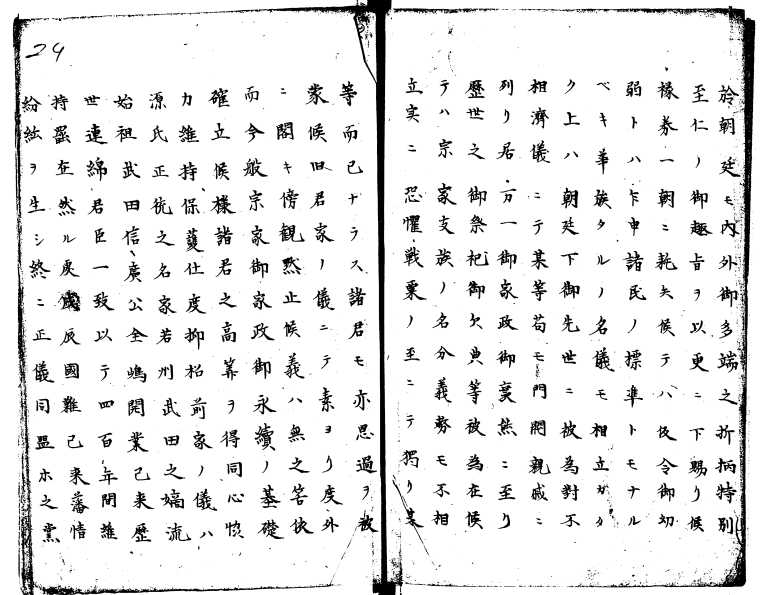 於朝廷モ內外御多端之折柄特別
至仁ノ御趣旨ヲ以更ニ下賜リ候
祿券一朝ニ耗失候テハ仮令御幼
弱トハ乍申諸民ノ標準トモナル
ベキ華族タルノ名儀モ相立ガタ
ク上ハ朝廷下御先世ニ被為對不
相濟儀ニテ某等苟モ門閥親戚ニ
列リ居万一御家政御衰態ニ至リ
歷世之御祭祀御欠典等被為在候
テハ宗家支族ノ名分義務モ不相
立実ニ恐懼戰栗ノ至ニテ獨リ某
等而已ナラス諸君モ亦思過ヲ被
蒙候旧君家ノ儀ニテ素ヨリ度外
ニ閣キ傍觀默止候義ハ無之筈依
而今般宗家御家政御永續ノ基礎
確立候樣諸君之高筭ヲ得同心協
力維持保護仕度抑松前家ノ儀ハ
源氏正統之名家若州武田之嫡流
始祖武田信廣公全嶋開業已来歷
世連綿君臣一致以テ四百年間維
持罷在然ル處戊辰國難已来藩情
紛紜ヲ生シ終ニ正儀同盟ホ之黨